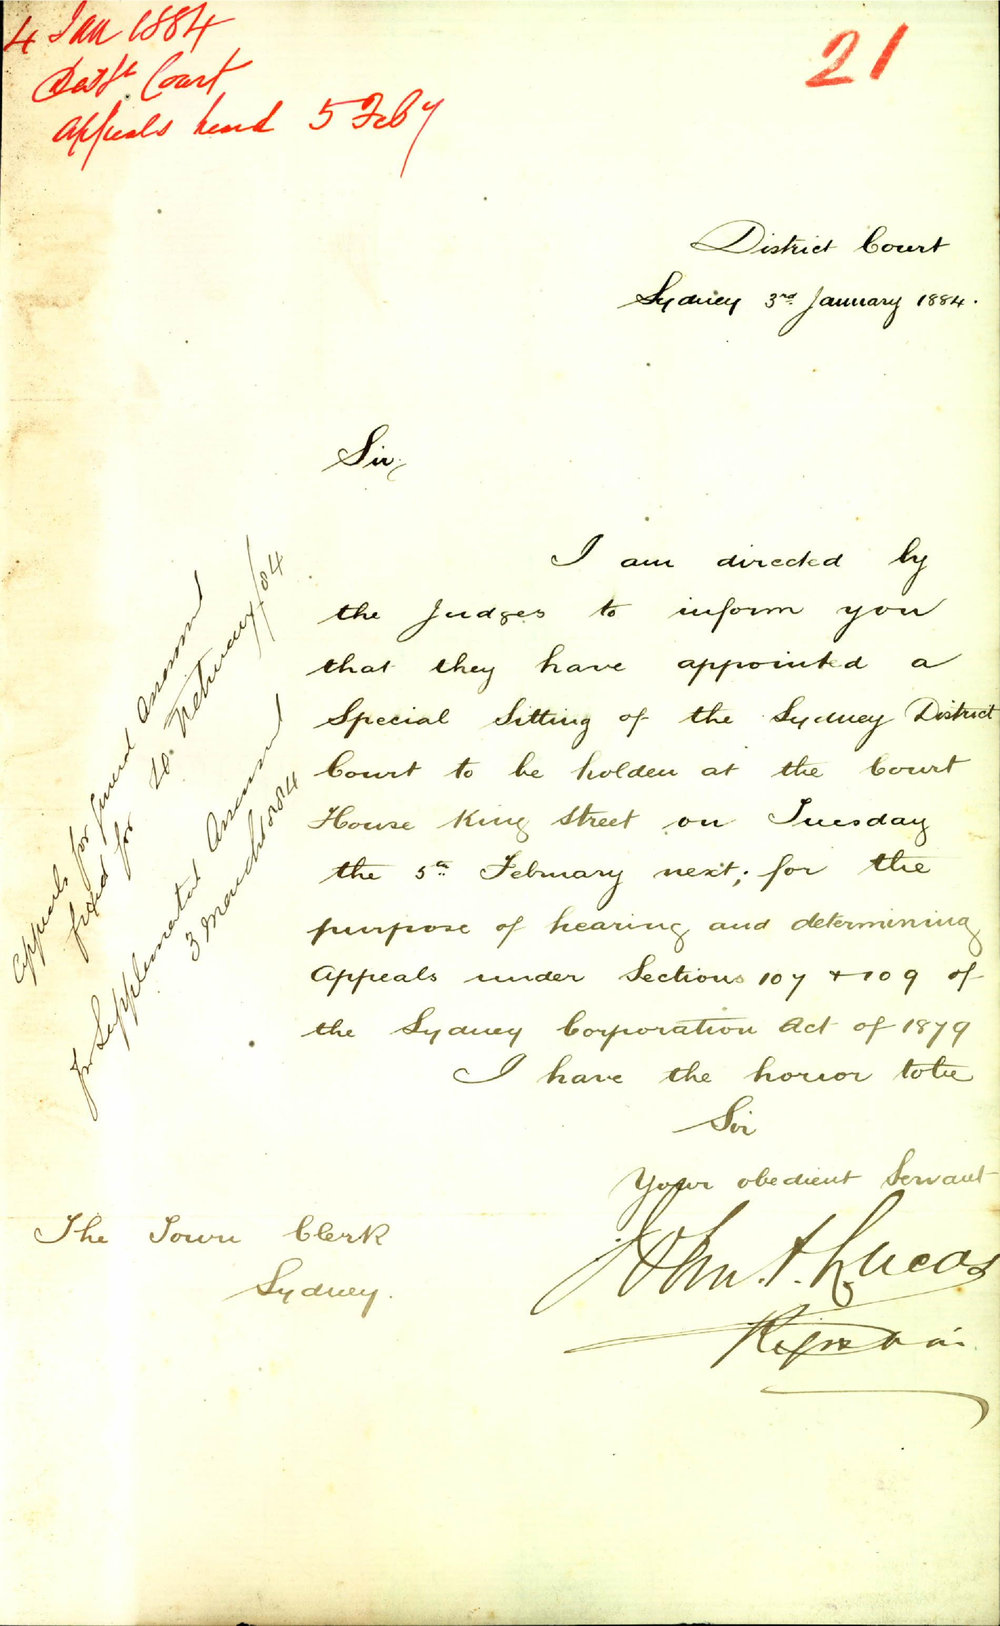 4 Jan 1884
21
Distt. Court
Appeals heard 5 Feby
District Court
Sydney 3rd January 1884.
Sir,
I am directed by
the Judges to inform you
that they have appointed a
Special Sitting of the Sydney District
Court to be holden at the Court
House King Street on Tuesday
the 5th February next; for the
purpose of hearing and determining
Appeals under Sections 107 & 109 of
the Sydney Corporation Act of 1879
I have the honor to be
Sir
Your obedient Servant
John A. Lucas
Registrar
The Town Clerk
Sydney.
Appeals for general Assessment
fixed for February/84
for Supplemental Assessment
3 March 1884